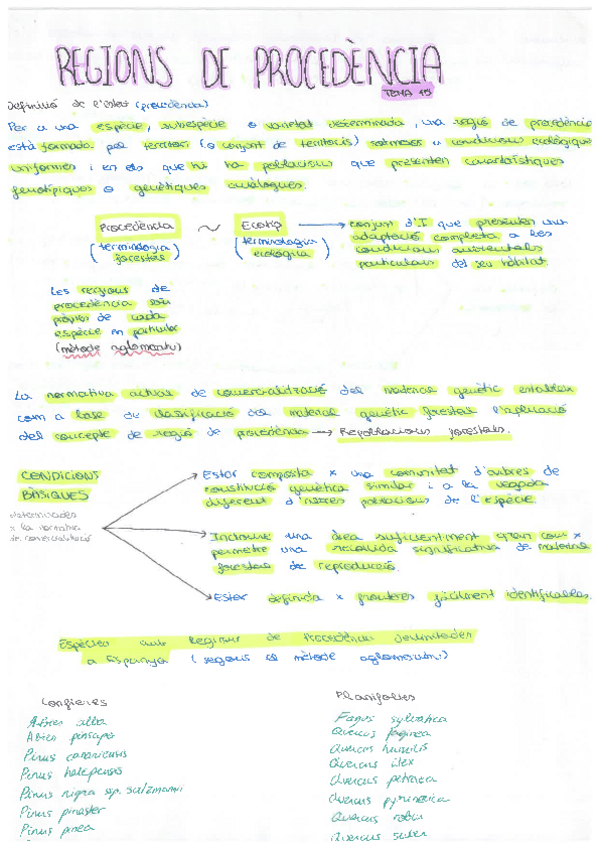 REGIONS DE PROCEDÈNCIA
TEMA 15
Definició de l'estat (procedència)
Per a una espècie, subespècie o varietat determinada, una regió de procedència
està formada pel territori (o conjunt de territoris) sotmesos a condicions ecològiques
uniformes i en els que hi ha poblacions que presenten característiques
fenotípiques o genètiques anàlogues.
Procedència ~ Ecotip → conjunt d'I que presenten una
(terminologia forestal) (terminologia ecològica) adaptació completa a les
condicions ambientals
particulars del seu hàbitat.
Les regions de
procedència són
pròpies de cada
espècie en particular
(mètode aglomeratiu)
La normativa actual de comercialització del material genètic estableix
com a base de classificació del material genètic forestal l'aplicació
del concepte de regió de procedència → Repoblacions forestals.
CONDICIONS
BÀSIQUES
determinades
x la normativa
de comercialització
Estar composta x una comunitat d'arbres de
constitució genètica similar i a la vegada
diferent d'altres poblacions de l'espècie.
Incloure una àrea suficientment gran com x
permetre una recollida significativa de material
forestal de reproducció.
Estar definida x fronteres fàcilment identificables.
Espècies amb Regions de Procedència delimitades
a Espanya (segons el mètode aglomeratiu)
Coníferes
Abies alba
Abies pinsapo
Pinus canariensis
Pinus halepensis
Pinus nigra sp. salzmannii
Pinus pinaster
Pinus pinea
Planifolies
Fagus sylvatica
Quercus faginea
Quercus humilis
Quercus ilex
Quercus petraea
Quercus pyrenaica
Quercus robur
Quercus suber